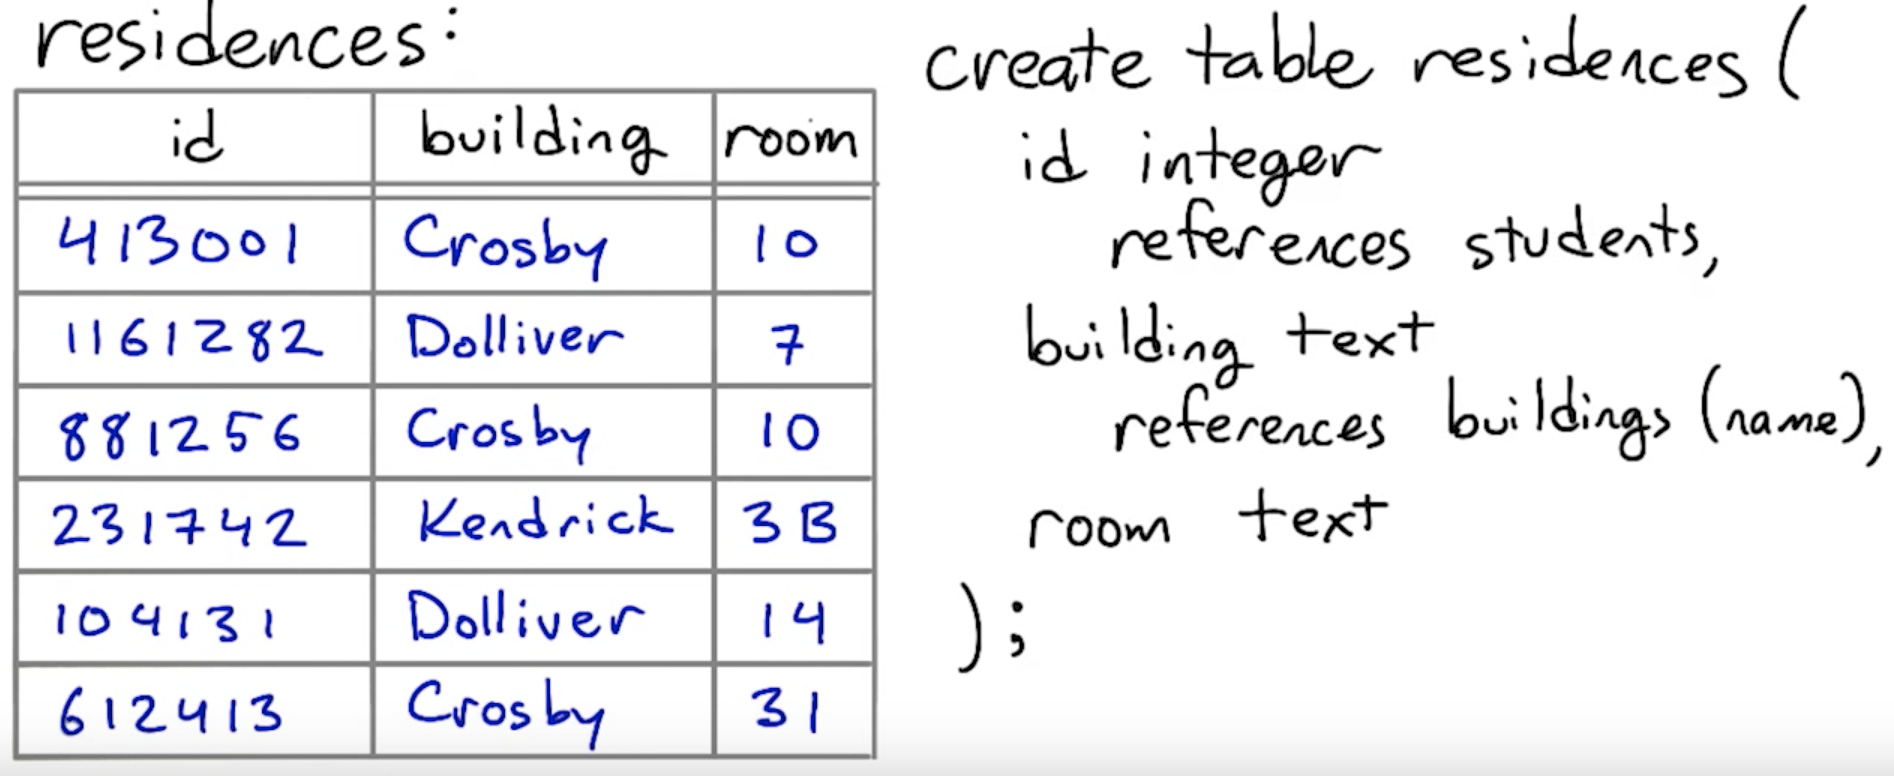 residences:
id building room
413001 Crosby 10
1161282 Dolliver 7
881256 Crosby 10
231742 Kendrick 3B
104131 Dolliver 14
612413 Crosby 31
create table residences (
id integer
references students,
building text
references buildings (name),
room text
);